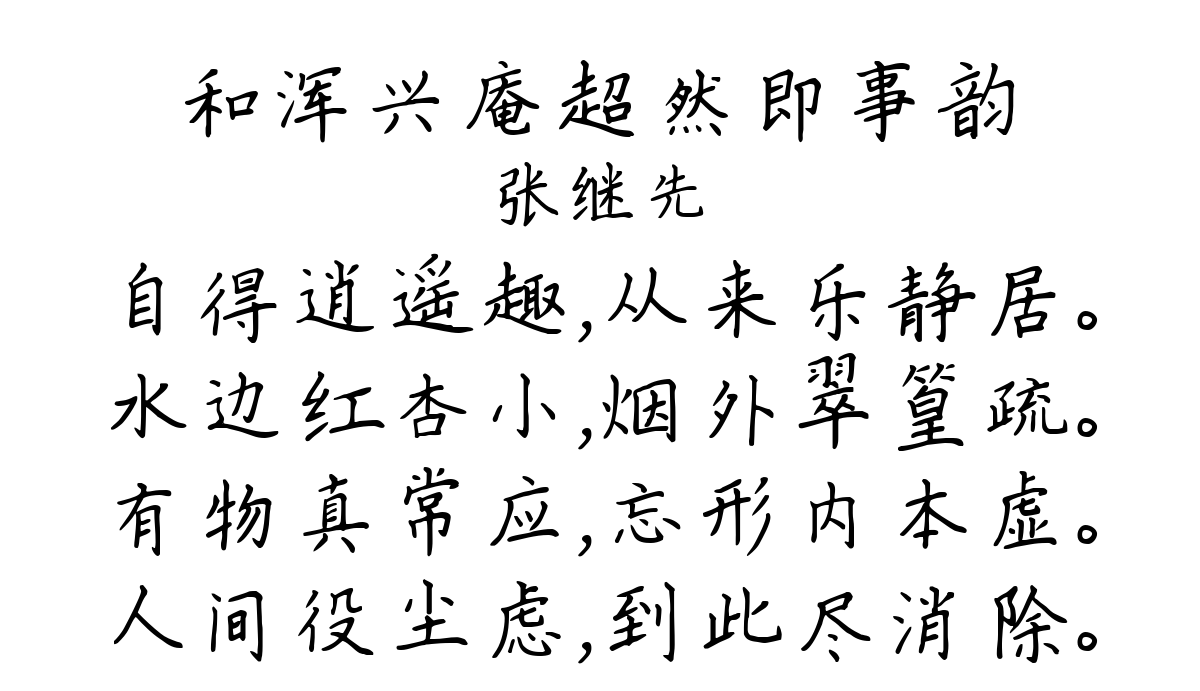 和浑兴庵超然即事韵
张继先
自得逍遥趣,从来乐静居。
水边红杏小,烟外翠篁疏。
有物真常应,忘形内本虚。
人间役尘虑,到此尽消除。